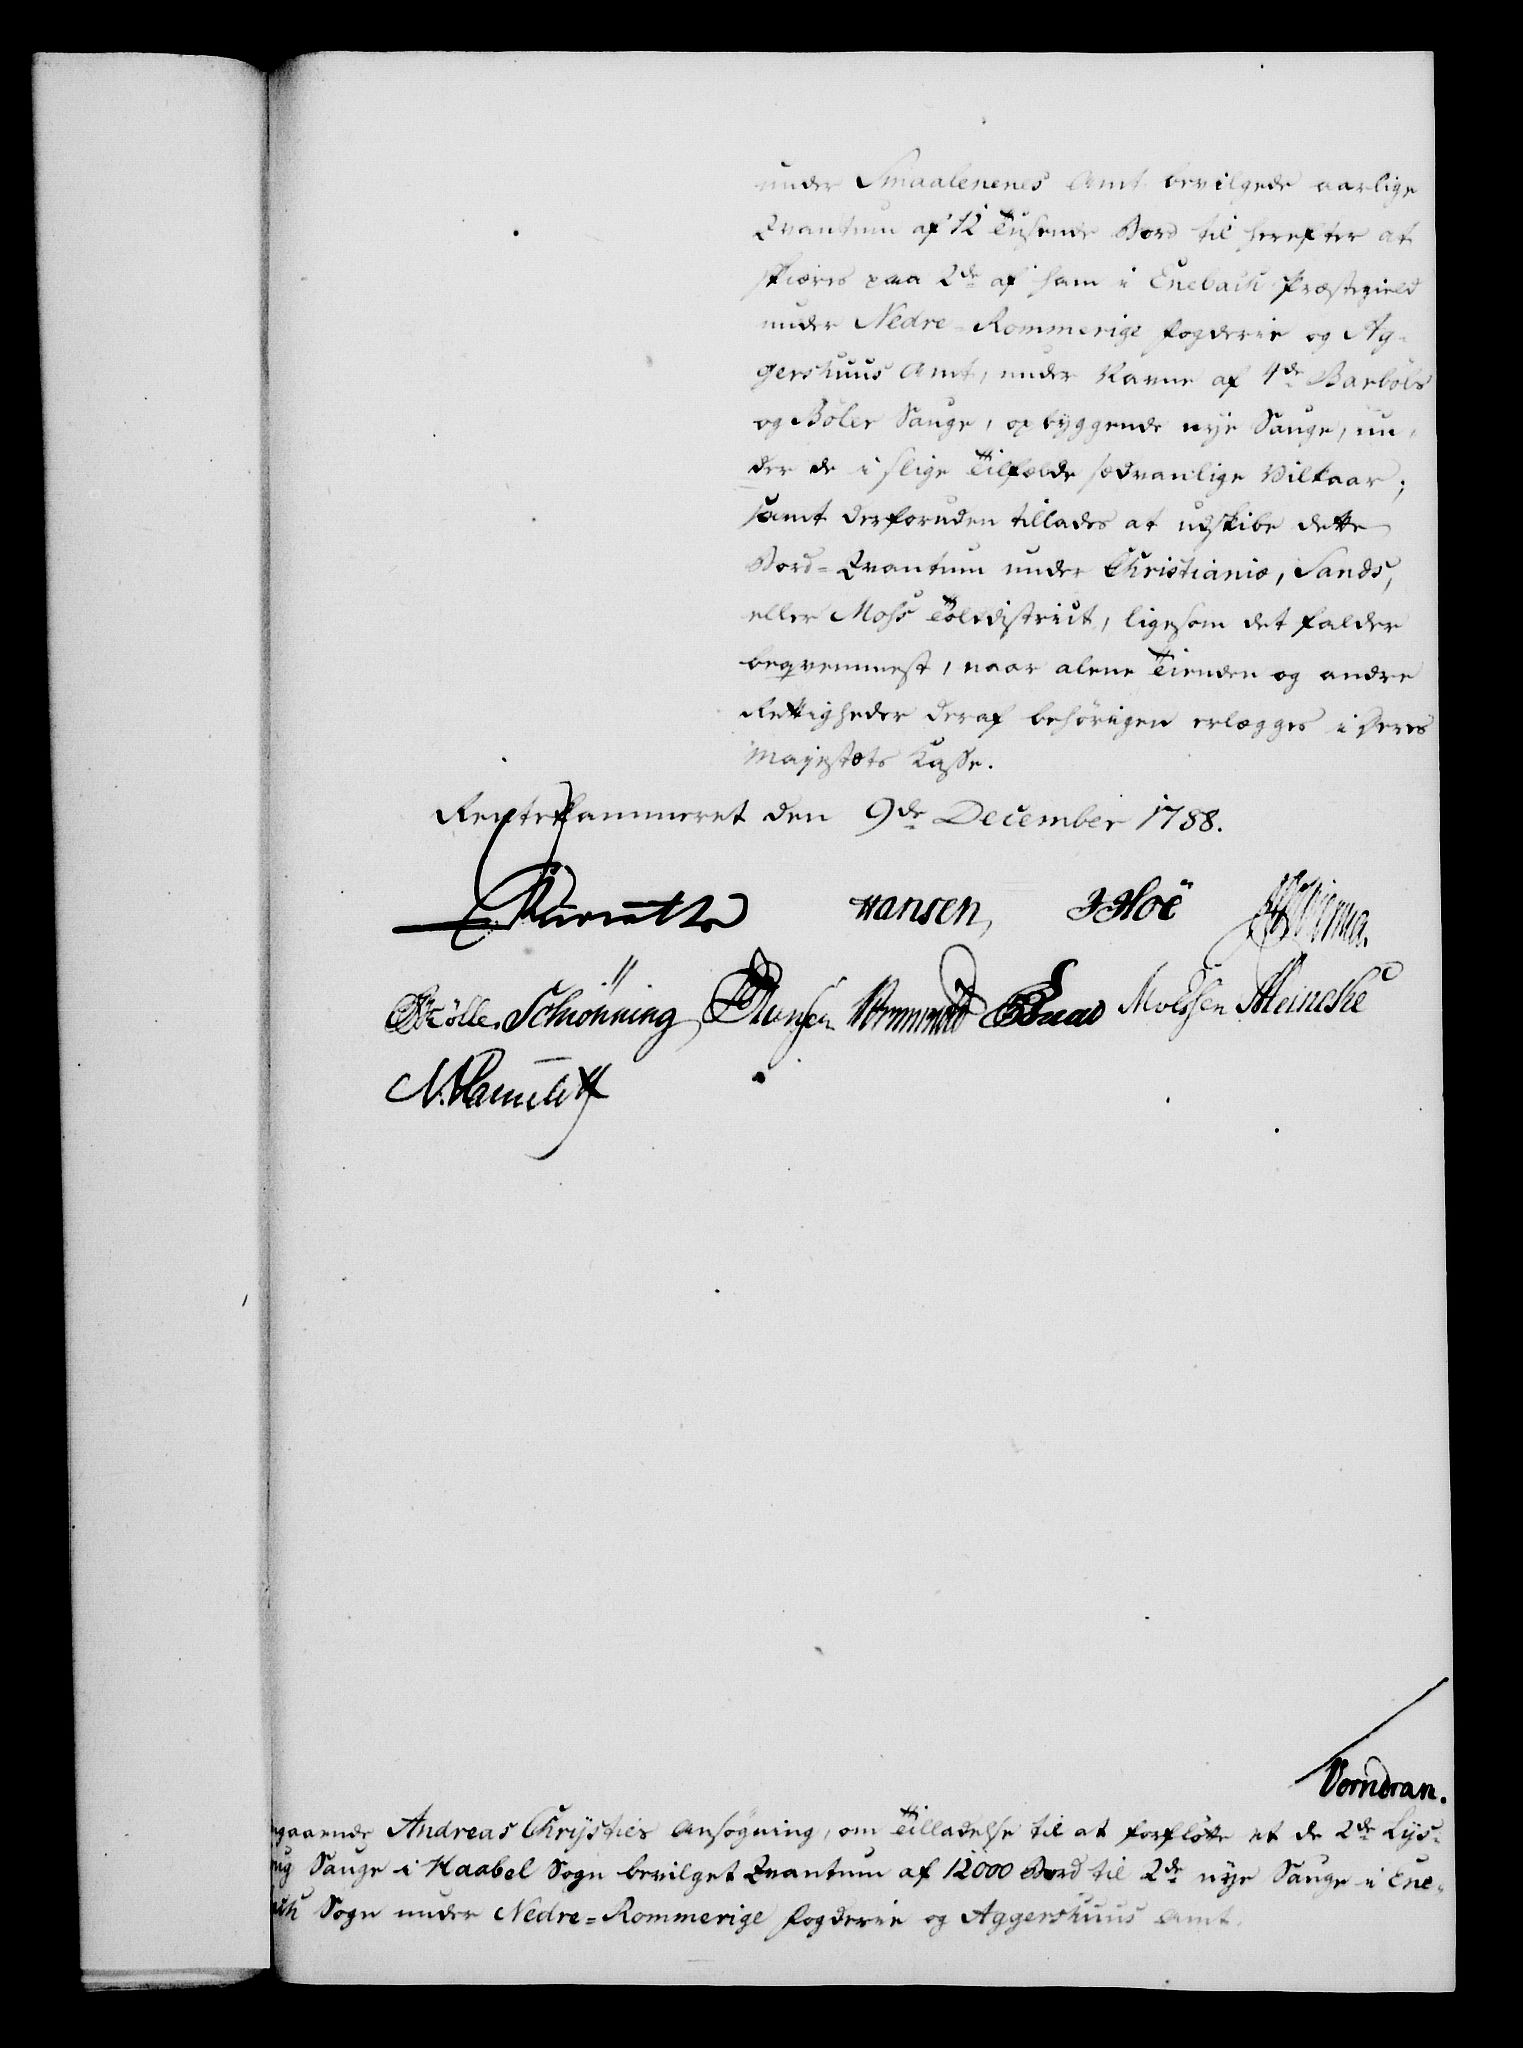 under Smaalenenes Amt bevilgede aarlige
Qvantum af 12 Tusende Bord til herefter at
skiæres paa 2de af ham i Enebach Præstegield
under Nedre-Rommerige fogderie og Ag-
gershuus Amt, under Navne af 4de Barböls
og Böler Sauge, opbyggende nye Sauge, un-
der de i slige Tilfælde sædvanlige Vilkaar;
samt desforuden tillades at udskibe dette
Bord-Qvantum under Christianiæ, Sands,
eller Moss Tolddistrict, ligesom det falder
beqvemmest, naar alene Tienden og andre
Rettigheder deraf behörigen erlægges i Deres
Majestæts Kasse.
Rentekammeret den 9de December 1788.
Hansen, Hoë
Schiönning Meineke
Vorndran.
gaaende Andreas Chrysties Ansögning, om Tilladelse til at forflötte et de 2de Lys-
Sauge i Haabel Sogn bevilget Qvantum af 12000 Bord til 2de nye Sauge i Ene-
Sogn under Nedre-Rommerige fogderie og Aggershuus Amt.